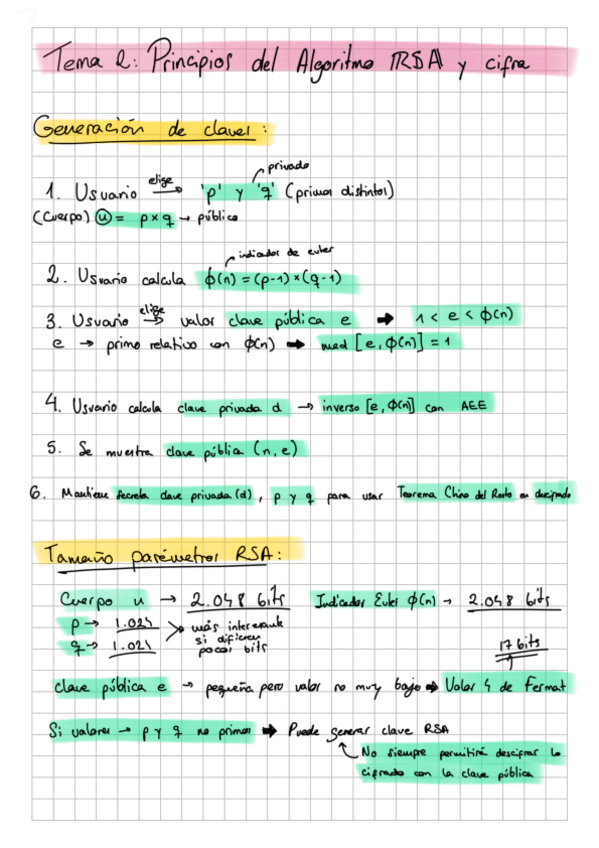 Tema 2: Principios del Algoritmo RSA y cifra
Generación de claves:
privado
1. Usuario elige → 'p' y 'q' (primos distintos)
(Cuerpo) n = p × q → público
indicador de euler
2. Usuario calcula ϕ(n) = (p-1) × (q-1)
3. Usuario elige → valor clave pública e → 1 < e < ϕ(n)
e → primo relativo con ϕ(n) → mcd [e, ϕ(n)] = 1
4. Usuario calcula clave privada d → inverso [e, ϕ(n)] con AEE
5. Se muestra clave pública (n, e)
6. Mantiene secreta clave privada (d), p y q para usar Teorema Chino del Resto en descifrado
Tamaño parámetros RSA:
Cuerpo n → 2.048 bits Indicador Euler ϕ(n) → 2.048 bits
p → 1.024 más interesante
q → 1.024 si difieren
pocos bits
17 bits
clave pública e → pequeña pero valor no muy bajo → Valor 4 de Fermat
Si valores → p y q no primos → Puede generar clave RSA
No siempre permitirá descifrar lo
cifrado con la clave pública